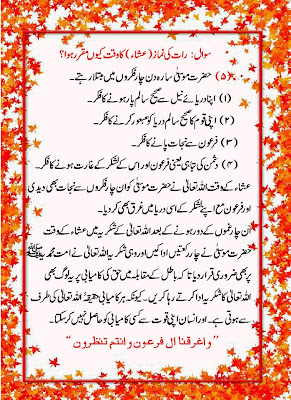 سوال: رات کی نماز (عشاء) کا وقت کیوں مقرر ہوا؟
(۵) حضرت موسیٰؑ سارہ دن چار فکروں میں مبتلا رہتے۔
(۱) اپنا دریائے نیل سے صحیح سالم پار ہونے کا فکر۔
(۲) اپنی قوم کا صحیح سالم دریا کو عبور کرنے کا فکر۔
(۳) فرعون سے نجات پانے کا فکر۔
(۴) دشمن کی تباہی یعنی فرعون اور اس کے لشکر کے غارت ہونے کا فکر۔
عشاء کے وقت اللہ تعالیٰ نے حضرت موسیٰؑ کو ان چار فکروں سے نجات بھی دیدی
اور فرعون مع اپنے لشکر کے اسی دریا میں غرق بھی کر دیا۔
ان چار غموں کے دور ہونے کے بعد اللہ تعالیٰ کے شکریہ میں عشاء کے وقت
حضرت موسیٰؑ نے چار رکعتیں ادا کیں اور وہی شکریہ اللہ تعالیٰ نے امت محمدیہ ﷺ
پر بھی ضروری قرار دیا تاکہ باطل کے مقابلہ میں حق کی کامیابی پر یہ لوگ بھی
اللہ تعالیٰ کا شکریہ ادا کرتے رہا کریں۔ کیونکہ ہر کامیابی حقیقۃً اللہ تعالیٰ کی طرف
سے ہوتی ہے۔ اور انسان اپنی قوت سے کسی کامیابی کو حاصل نہیں کر سکتا۔
"واغرقنا ال فرعون وانتم تنظرون"